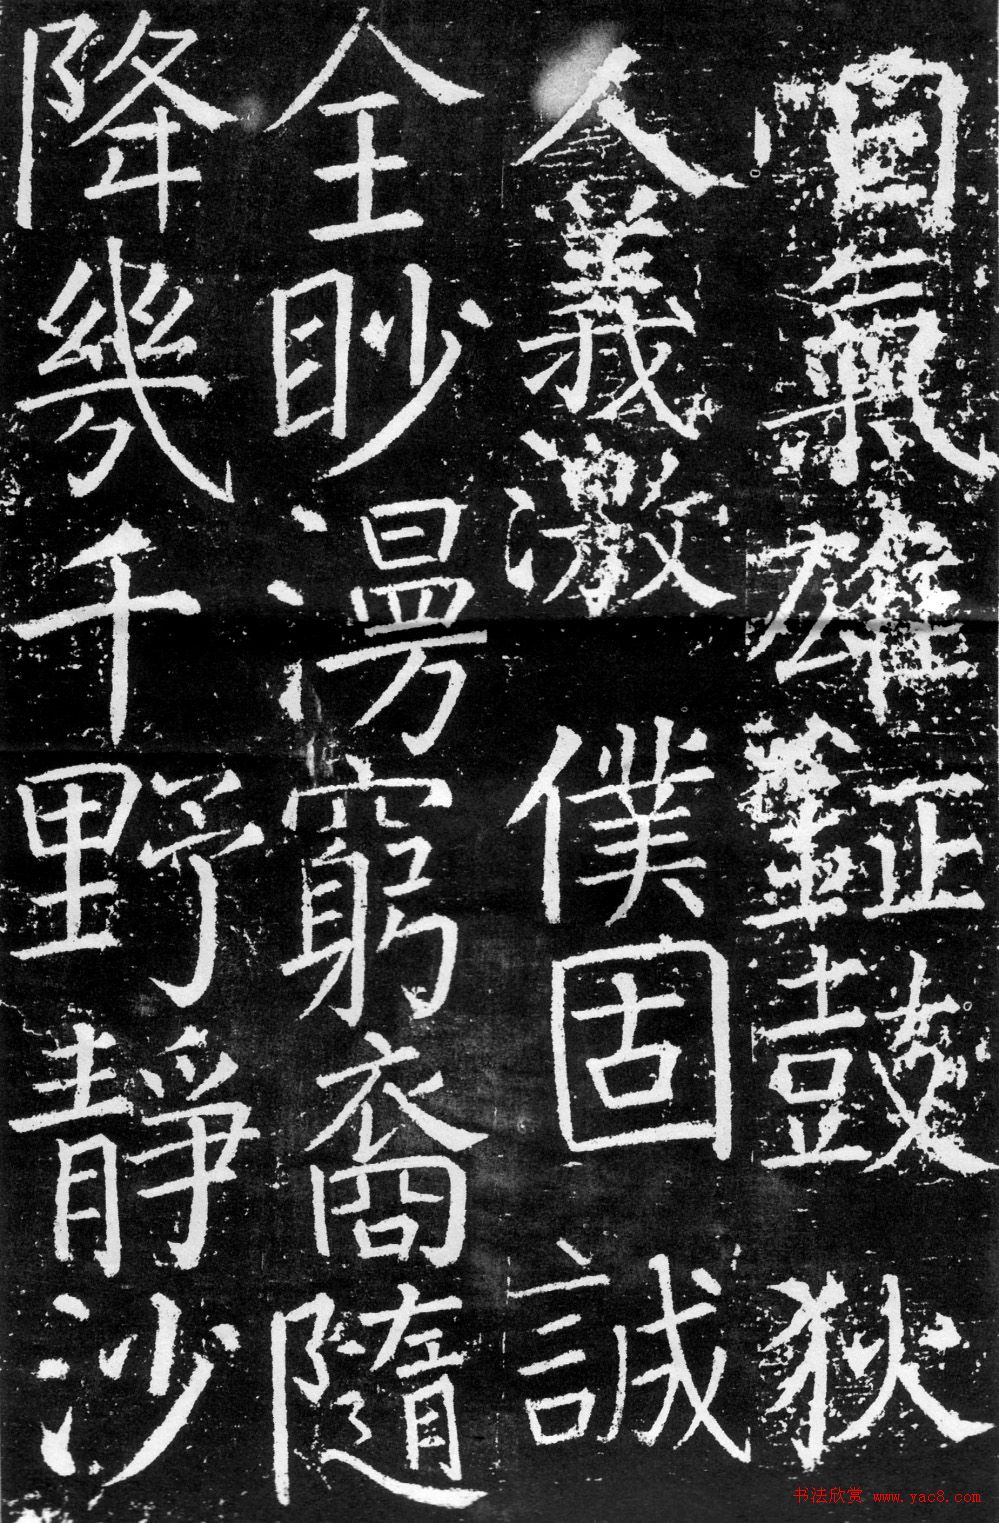 氣雄鉦鼓狄
人義激僕固誠
全眇漫窮裔隨
降幾千野靜沙
书法欣赏 www.yac8.com